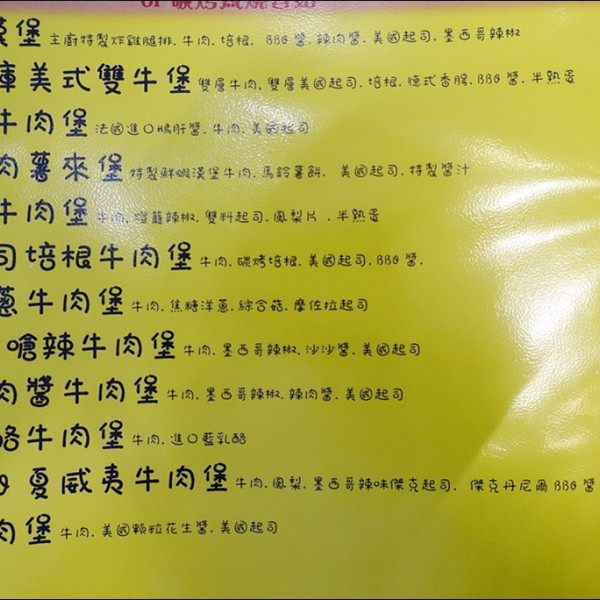 堡 主廚特製炸雞腿排. 牛肉. 培根. BBQ 醬. 辣肉醬. 美國起司. 墨西哥辣椒
庫美式雙牛堡 雙層牛肉. 雙層美國起司. 培根. 德式香腸. BBQ 醬. 半熟蛋
牛肉堡 法國進口鴨肝醬. 牛肉. 美國起司
肉薯來堡 特製鮮蝦漢堡牛肉. 馬鈴薯餅. 美國起司. 特製醬汁
牛肉堡 牛肉. 燈籠辣椒. 雙料起司. 鳳梨片. 半熟蛋
司培根牛肉堡 牛肉. 碳烤培根. 美國起司. BBQ 醬.
蔥牛肉堡 牛肉. 焦糖洋蔥. 綜合菇. 摩佐拉起司
嗆辣牛肉堡 牛肉. 墨西哥辣椒. 沙沙醬. 美國起司
肉醬牛肉堡 牛肉. 墨西哥辣椒. 辣肉醬. 美國起司
酪牛肉堡 牛肉. 進口藍乳酪
夏威夷牛肉堡 牛肉. 鳳梨. 墨西哥辣味傑克起司. 傑克丹尼爾 BBQ 醬
肉堡 牛肉. 美國顆粒花生醬. 美國起司